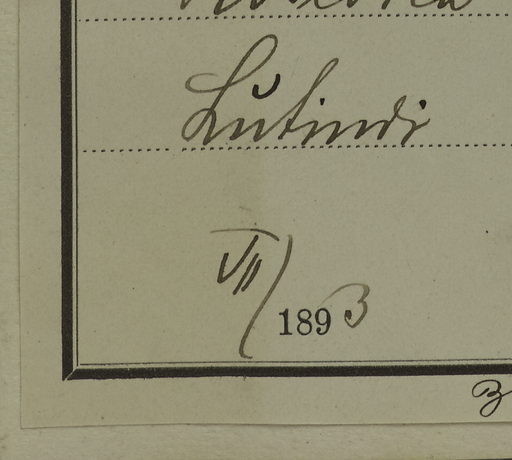 Lutindi
VII/1893
B